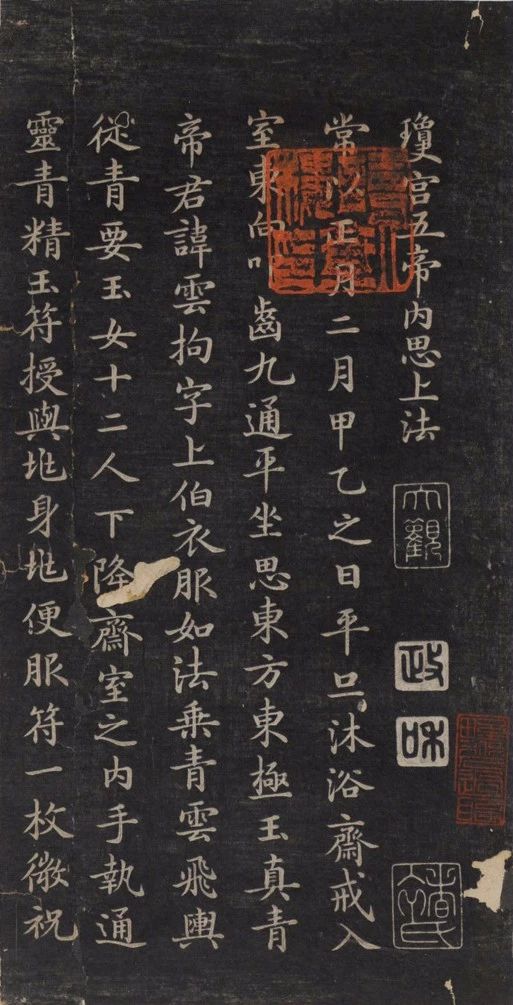 大觀
政
和
瓊宫五帝内思上法
常以正月二月甲乙之日平旦沐浴齋戒入
室東向叩齒九通平坐思東方東極玉真青
帝君諱雲拘字上伯衣服如法乗青雲飛輿
從青要玉女十二人下降齋室之内手執通
靈青精玉符授與兆身兆便服符一枚微祝